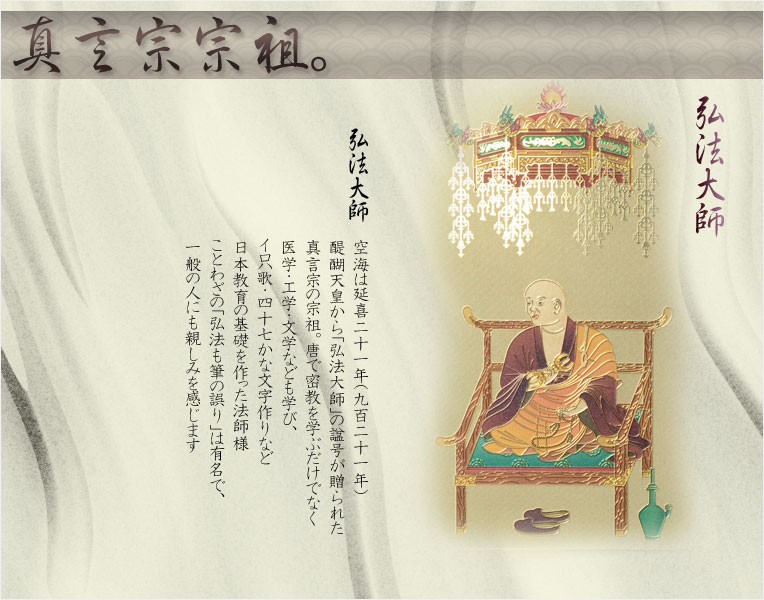 真言宗宗祖。
弘法大師
弘法大師
空海は延喜二十一年(九百二十一年)
醍醐天皇から「弘法大師」の諡号が贈られた
真言宗の宗祖。唐で密教を学ぶだけでなく
医学・工学・文学なども学び、
イロハ歌・四十七かな文字作りなど
日本教育の基礎を作った法師様
ことわざの「弘法も筆の誤り」は有名で、
一般の人にも親しみを感じます